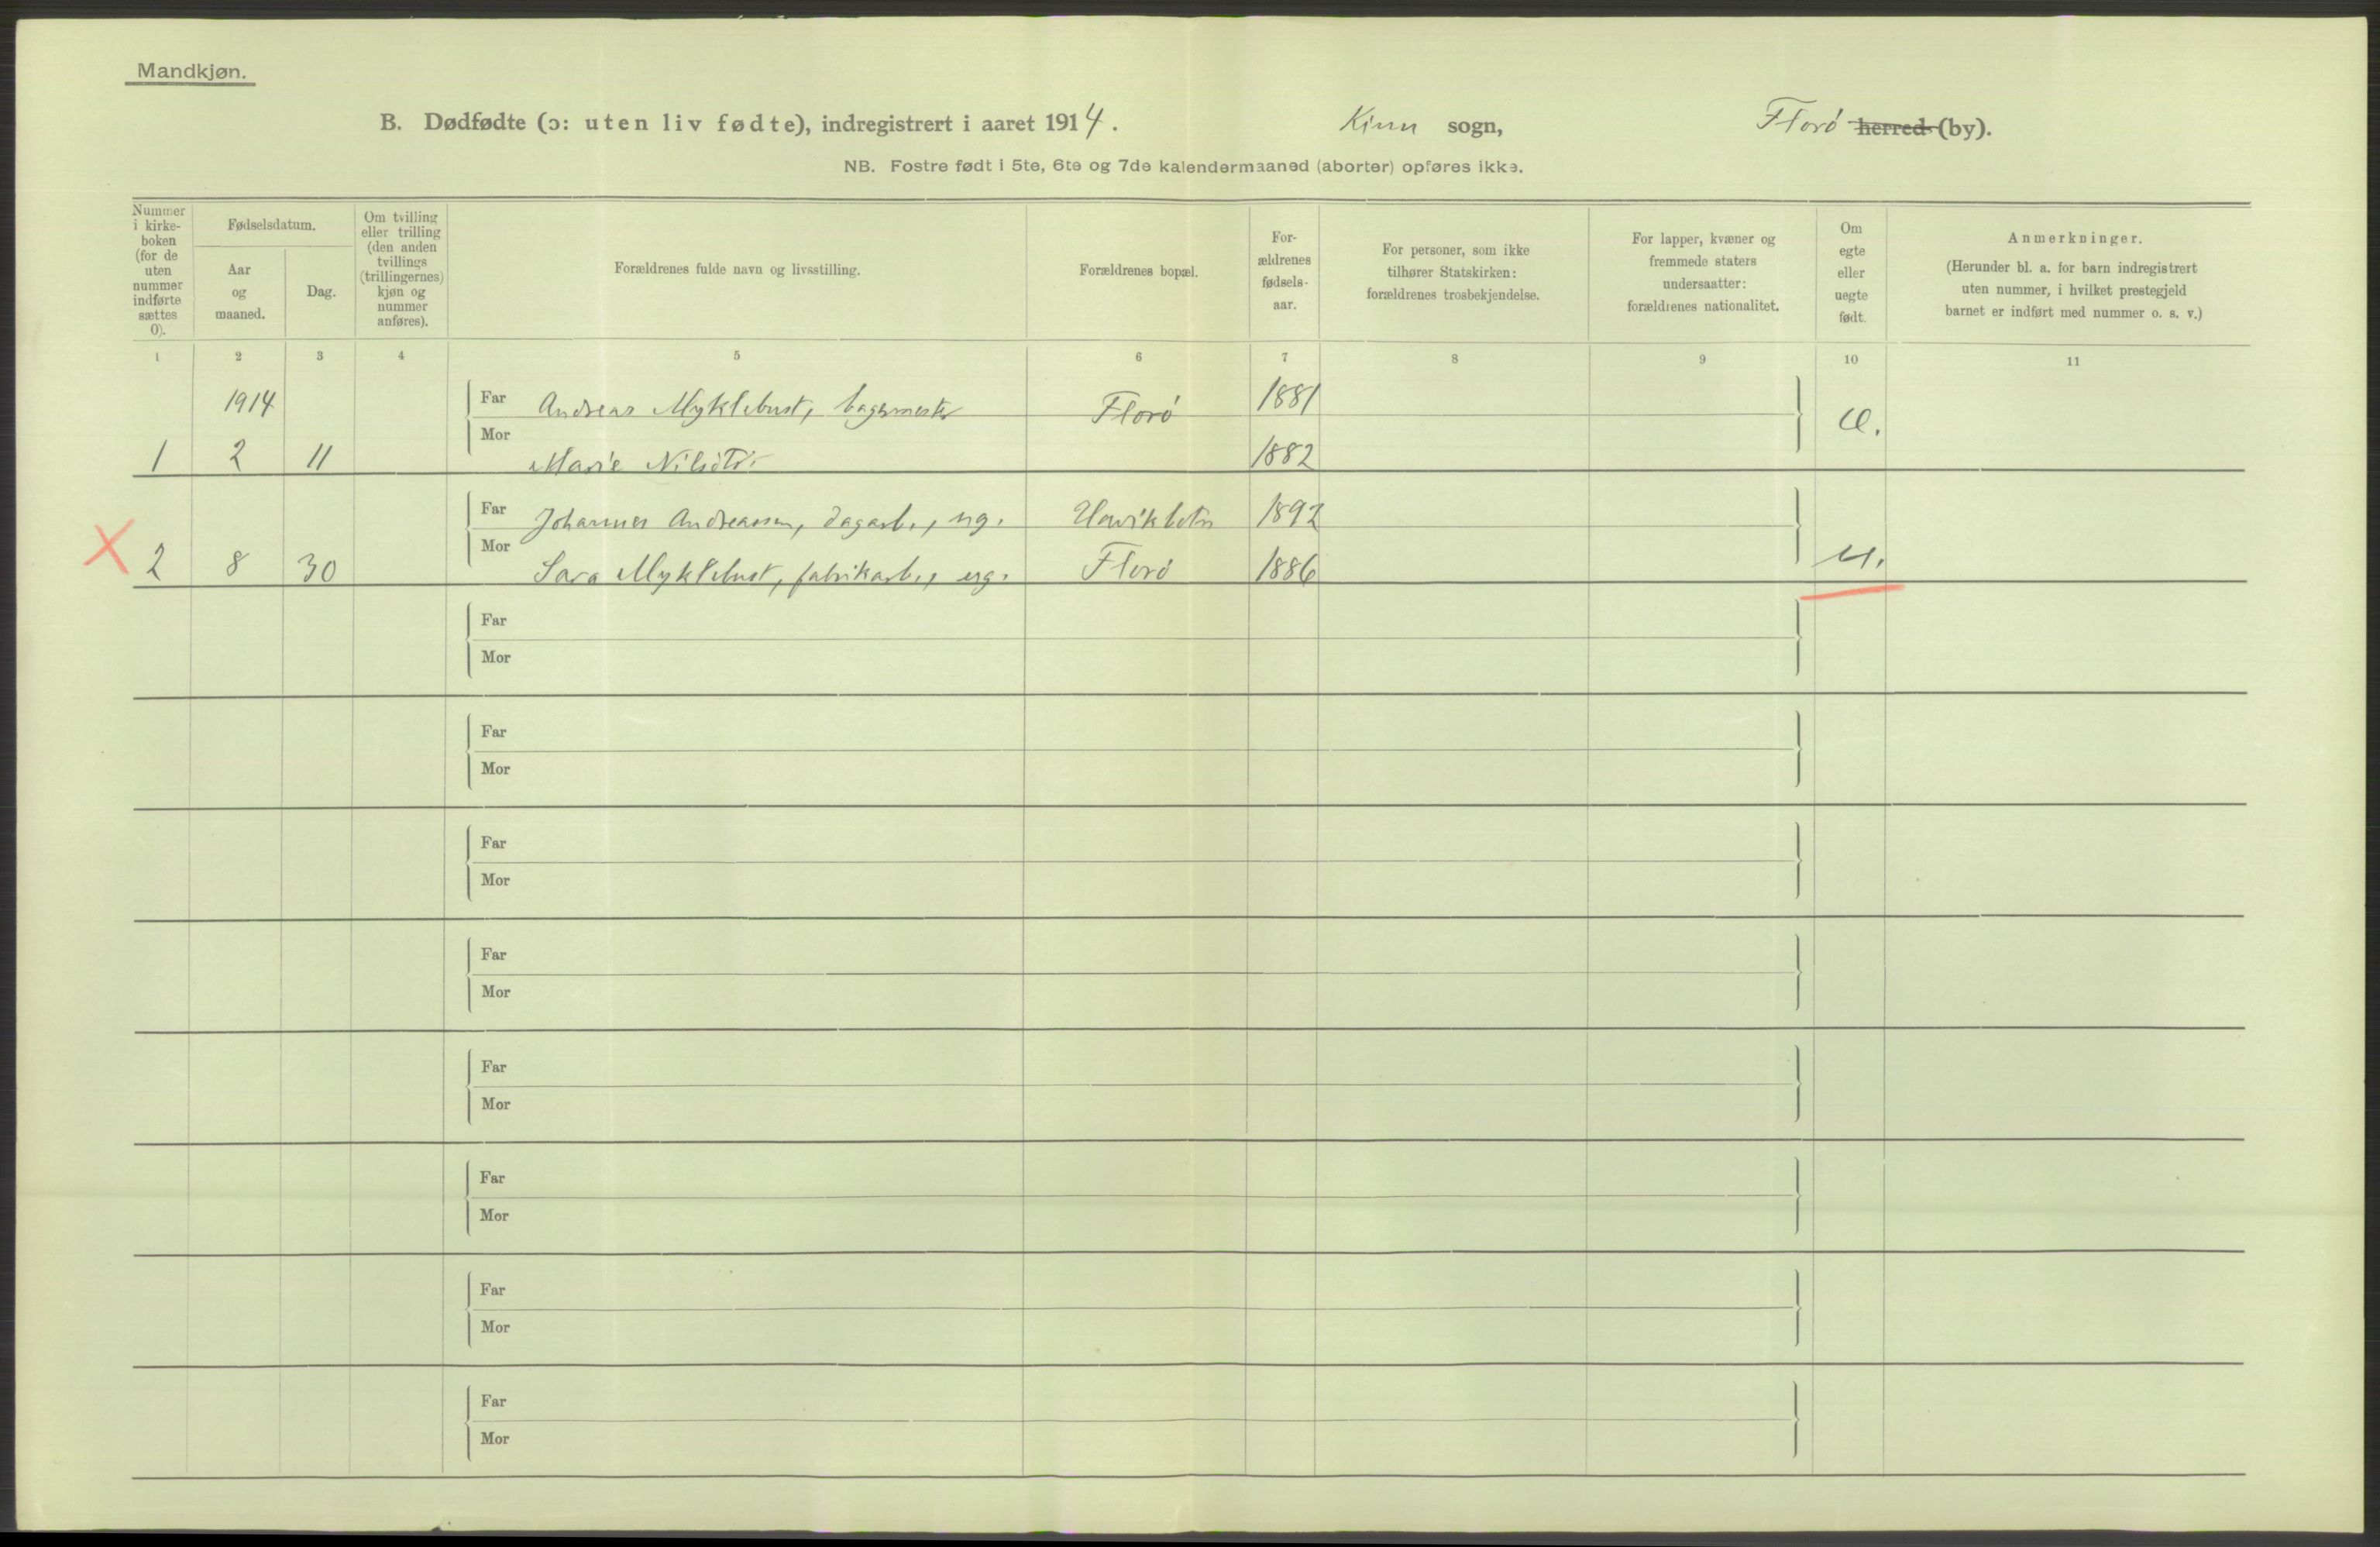 Mandkjøn.
B. Dødfødte (ɔ: uten liv fødte), indregistrert i aaret 1914. Kinn sogn, Florø herred (by).
NB. Fostre født i 5te, 6te og 7de kalendermaaned (aborter) opføres ikke.
Nummer
i kirke-
boken
(for de
uten
nummer
indførte
sættes
0).
Fødselsdatum.
Aar
og
maaned.
Dag.
Om tvilling
eller trilling
(den anden
tvillings
(trillingernes)
kjøn og
nummer
anføres).
Forældrenes fulde navn og livsstilling.
Forældrenes bopæl.
For-
ældrenes
fødsels-
aar.
For personer, som ikke
tilhører Statskirken:
forældrenes trosbekjendelse.
For lapper, kvæner og
fremmede staters
undersaatter:
forældrenes nationalitet.
Om
egte
eller
uegte
født.
Anmerkninger.
(Herunder bl. a. for barn indregistrert
uten nummer, i hvilket prestegjeld
barnet er indført med nummer o. s. v.)
1 2 3 4 5 6 7 8 9 10 11
1914 Far Andreas Myklebust, bagermester Florø 1881
1 2 11 Mor Marie Nilsdtr. 1882 e.
Far Johannes Andreassen, dagarb., ug. 1892
X 2 8 30 Mor Sara Myklebust, fabrikarb., ug. Florø 1886 u.
Far
Mor
Far
Mor
Far
Mor
Far
Mor
Far
Mor
Far
Mor
Far
Mor
Far
Mor